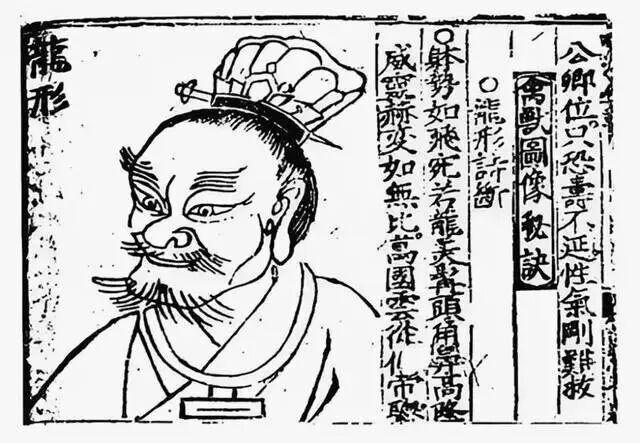 公卿位只恐壽不延性氣剛難救
禽獸圖像秘訣
○龍形詩断
○躰勢如飛宛若龍美髯頭角鼻高隆
威靈赫奕如無比萬國雲從帝
龍形